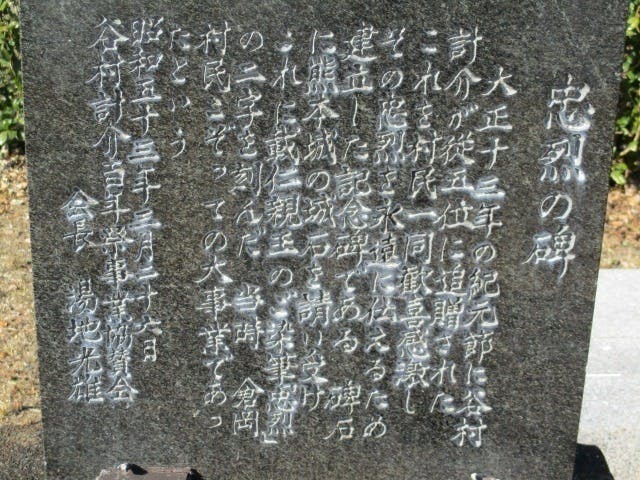 忠烈の碑
大正十三年の紀元節に谷村
計介が従五位に追贈された
これを村民一同歓喜感激し
その忠烈を永遠に伝えるため
建立した記念碑である 碑石
に熊本城の城石を請け受け
これに載仁親王のご染筆「忠烈」
の二字を刻んだ 当時 倉岡
村民こぞっての大事業であっ
たという
昭和五十三年三月二十六日
谷村計介百年祭事業協賛会
会長 湯地光雄